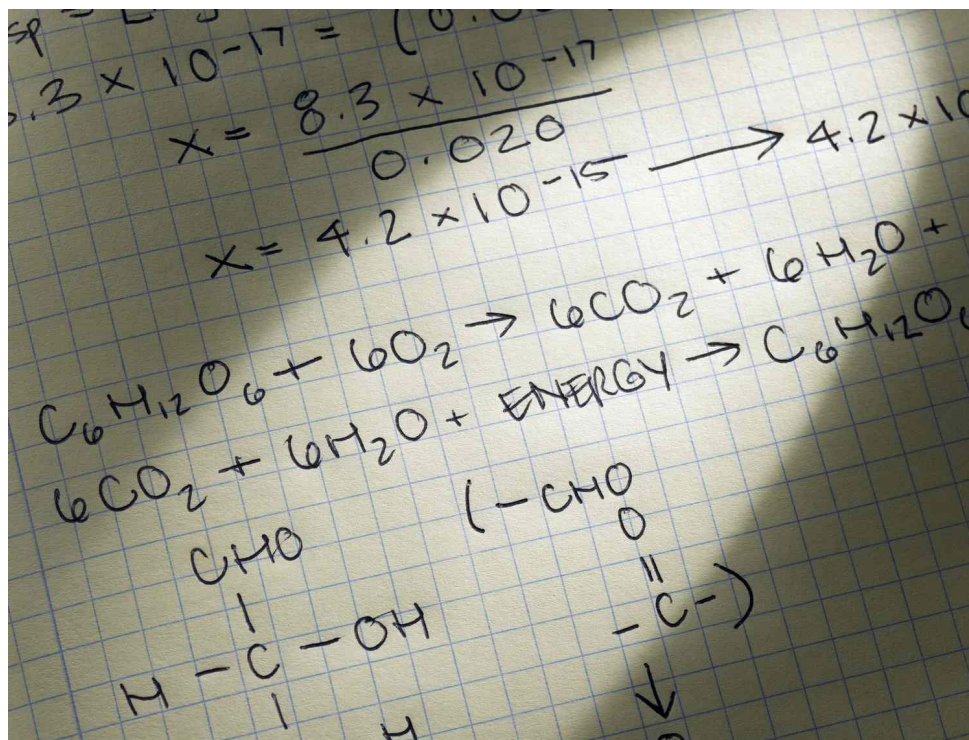 sp =
.3 × 10⁻¹⁷ = (0.0
x = 8.3 × 10⁻¹⁷
0.020
x = 4.2 × 10⁻¹⁵ → 4.2 × 10
C₆H₁₂O₆ + 6O₂ → 6CO₂ + 6H₂O +
6CO₂ + 6H₂O + ENERGY → C₆H₁₂O₆
CHO (-CHO
O
H - C - OH - C - )
H